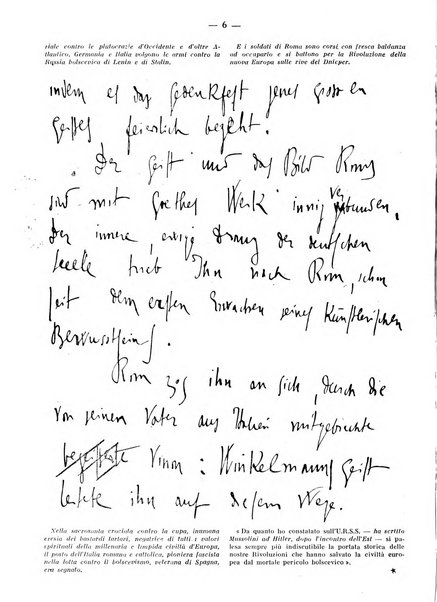 — 6 —
ziale contro le plutocrazie d'Occidente e d'oltre A-
tlantico, Germania e Italia volgono le armi contro la
Russia bolscevica di Lenin e di Stalin.
E i soldati di Roma sono corsi con fresca baldanza
ad occuparlo e si battono per la Rivoluzione della
nuova Europa sulle rive del Dnieper.
indem es das Gedenkfest jenes grossen
Geistes feierlich begeht.
Der Geist und das Bild Roms
sind mit Goethes Werk innig verbunden,
Der innere, ewige Drang der deutschen
Seele trieb Ihn nach Rom, schon
seit dem ersten Erwachen seines Künstlerischen
Bewusstseins.
Rom zog ihn an sich, durch die
von seinem Vater aus Italien mitgebrachte
begeisterte Vision: Winkelmanns Geist
leitete ihn auf diesem Wege.
Nella sacrosanta crociata contro la cupa, immane
eresia dei bastardi tartari, negatrice di tutti i valori
spirituali della millenaria e limpida civiltà d'Europa,
il posto dell'Italia romana e cattolica, pioniera fascista
nella lotta contro il bolscevismo, veterana di Spagna,
era segnato.
« Da quanto ho constatato sull'U.R.S.S. — ha scritto
Mussolini ad Hitler, dopo l'incontro dell'Est — si pa-
lesa sempre più indiscutibile la portata storica delle
nostre Rivoluzioni che hanno salvato la civiltà euro-
pea dal mortale pericolo bolscevico ».
★